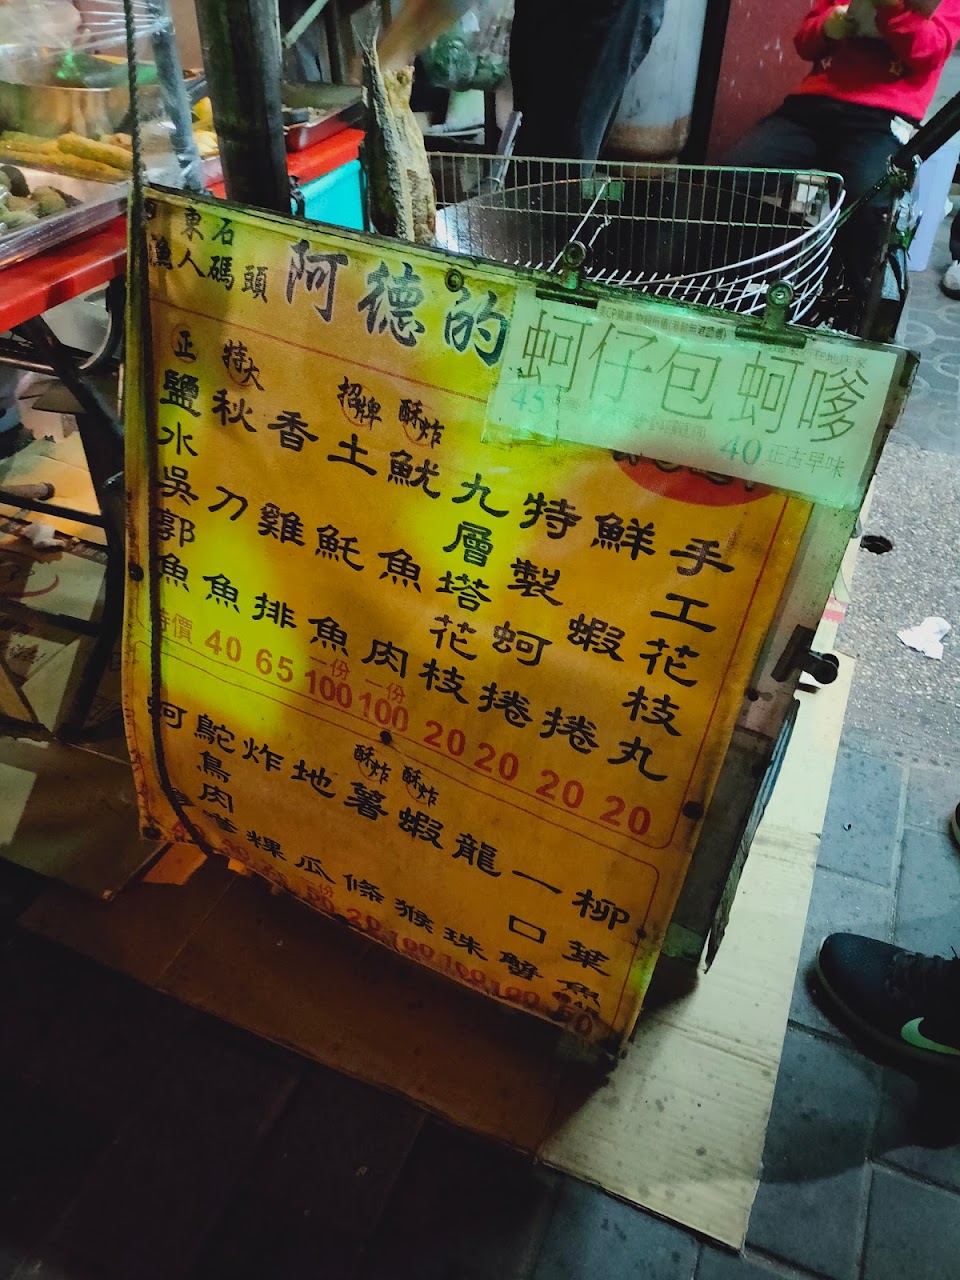 東石
漁人碼頭
阿德的
蚵仔包
45
蚵嗲
40 正古早味
正
鹽水吳郭魚
特價
特大
秋刀魚
40
香雞排
65
招牌
土魠魚
一份
100
酥炸
魷魚肉
一份
100
九層塔花枝
20
特製蚵捲
20
鮮蝦捲
20
手工花枝丸
20
鴕鳥肉
炸粿
地瓜
薯條
20
酥炸
蝦猴
100
酥炸
龍珠
100
一口蟹
100
柳葉魚
60